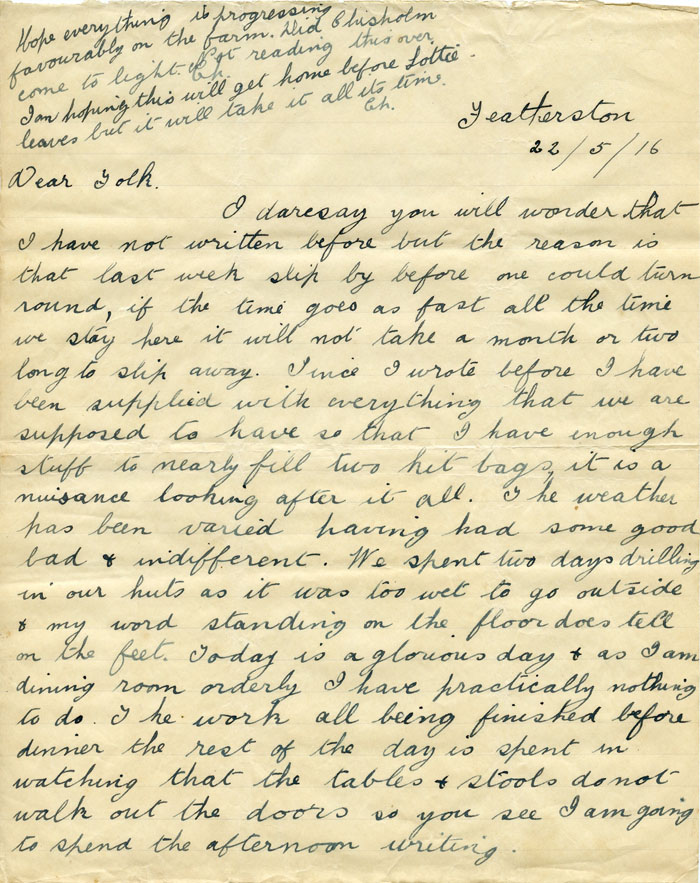 Hope everything is progressing
favourably on the farm. Did Chisholm
come to light. Not reading this over.
Ch.
I am hoping this will get home before Lottie
leaves but it will take it all its time.
Ch.
Featherston
22/5/16
Dear Folk.
I daresay you will wonder that
I have not written before but the reason is
that last week slip by before one could turn
round, if the time goes as fast all the time
we stay here it will not take a month or two
long to slip away. Since I wrote before I have
been supplied with everything that we are
supposed to have so that I have enough
stuff to nearly fill two kit bags, it is a
nuisance looking after it all. The weather
has been varied having had some good
bad & indifferent. We spent two days drilling
in our huts as it was too wet to go outside
& my word standing on the floor does tell
on the feet. Today is a glorious day & as I am
dining room orderly I have practically nothing
to do. The work all being finished before
dinner the rest of the day is spent in
watching that the tables & stools do not
walk out the doors so you see I am going
to spend the afternoon writing.